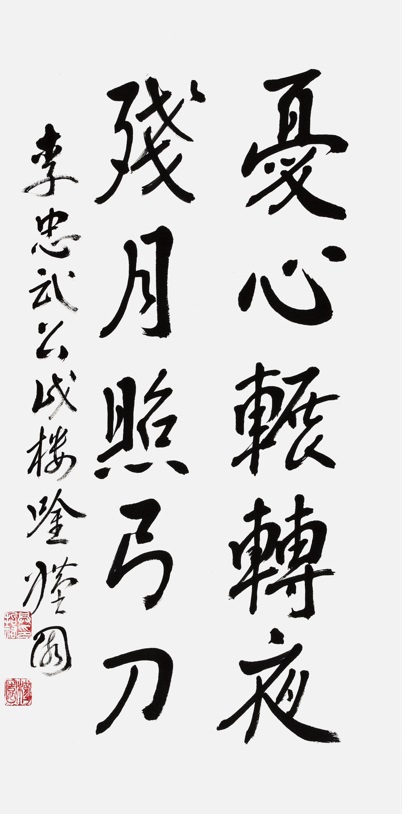 憂心輾轉夜
殘月照弓刀
李忠武公戍樓唫